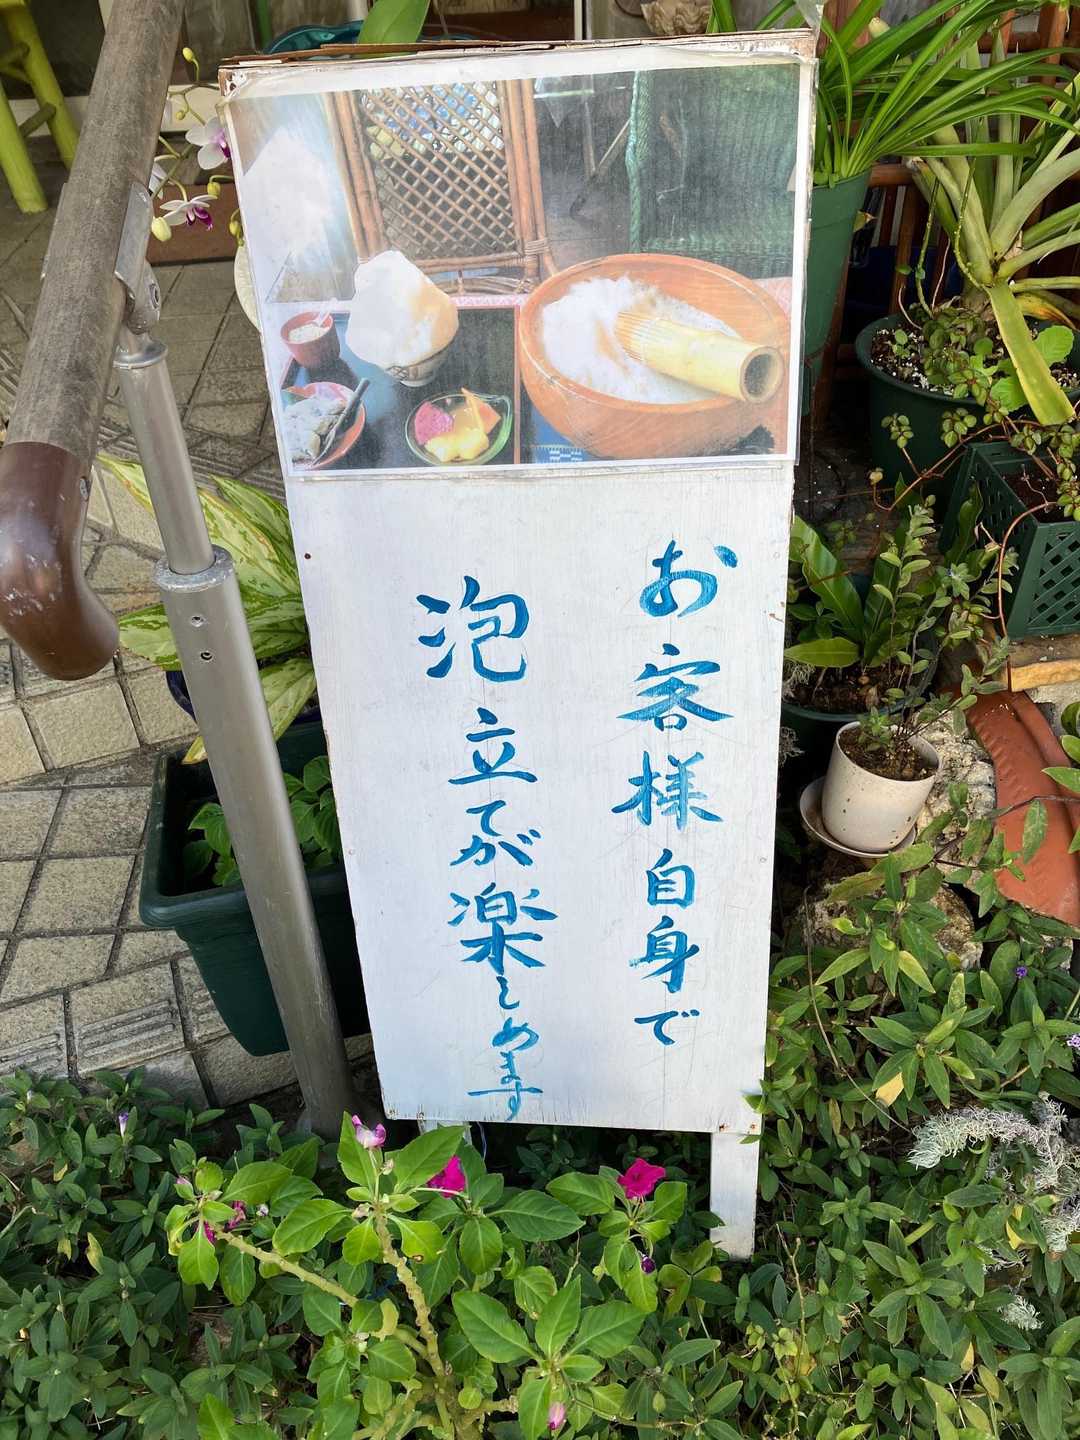 お客様自身で
泡立てが楽しめます